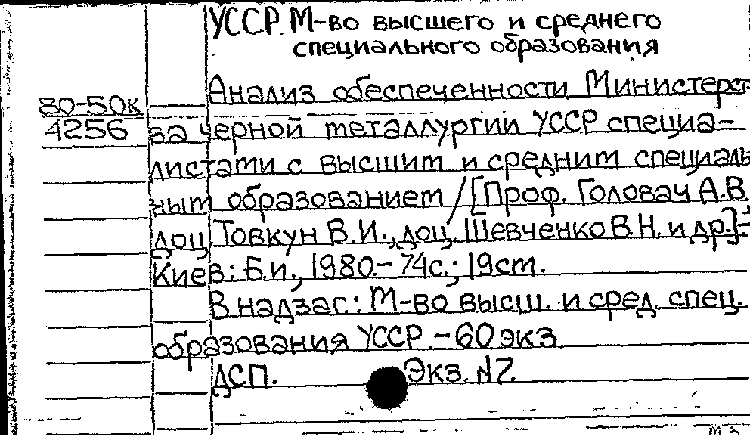 УССР. М-во высшего и среднего
специального образования
80-50к
4256
Анализ обеспеченности Министерст-
ва черной металлургии УССР специа-
листами с высшим и средним специаль
ным образованием / [Проф. Головач А.В.,
доц. Товкун В.И., доц. Шевченко В.Н. и др.].-
Киев: Б.и., 1980.- 74с.; 19см.
В надзаг: М-во высш. и сред. спец.
образования УССР. - 60 экз.
ДСП. Экз. №7.